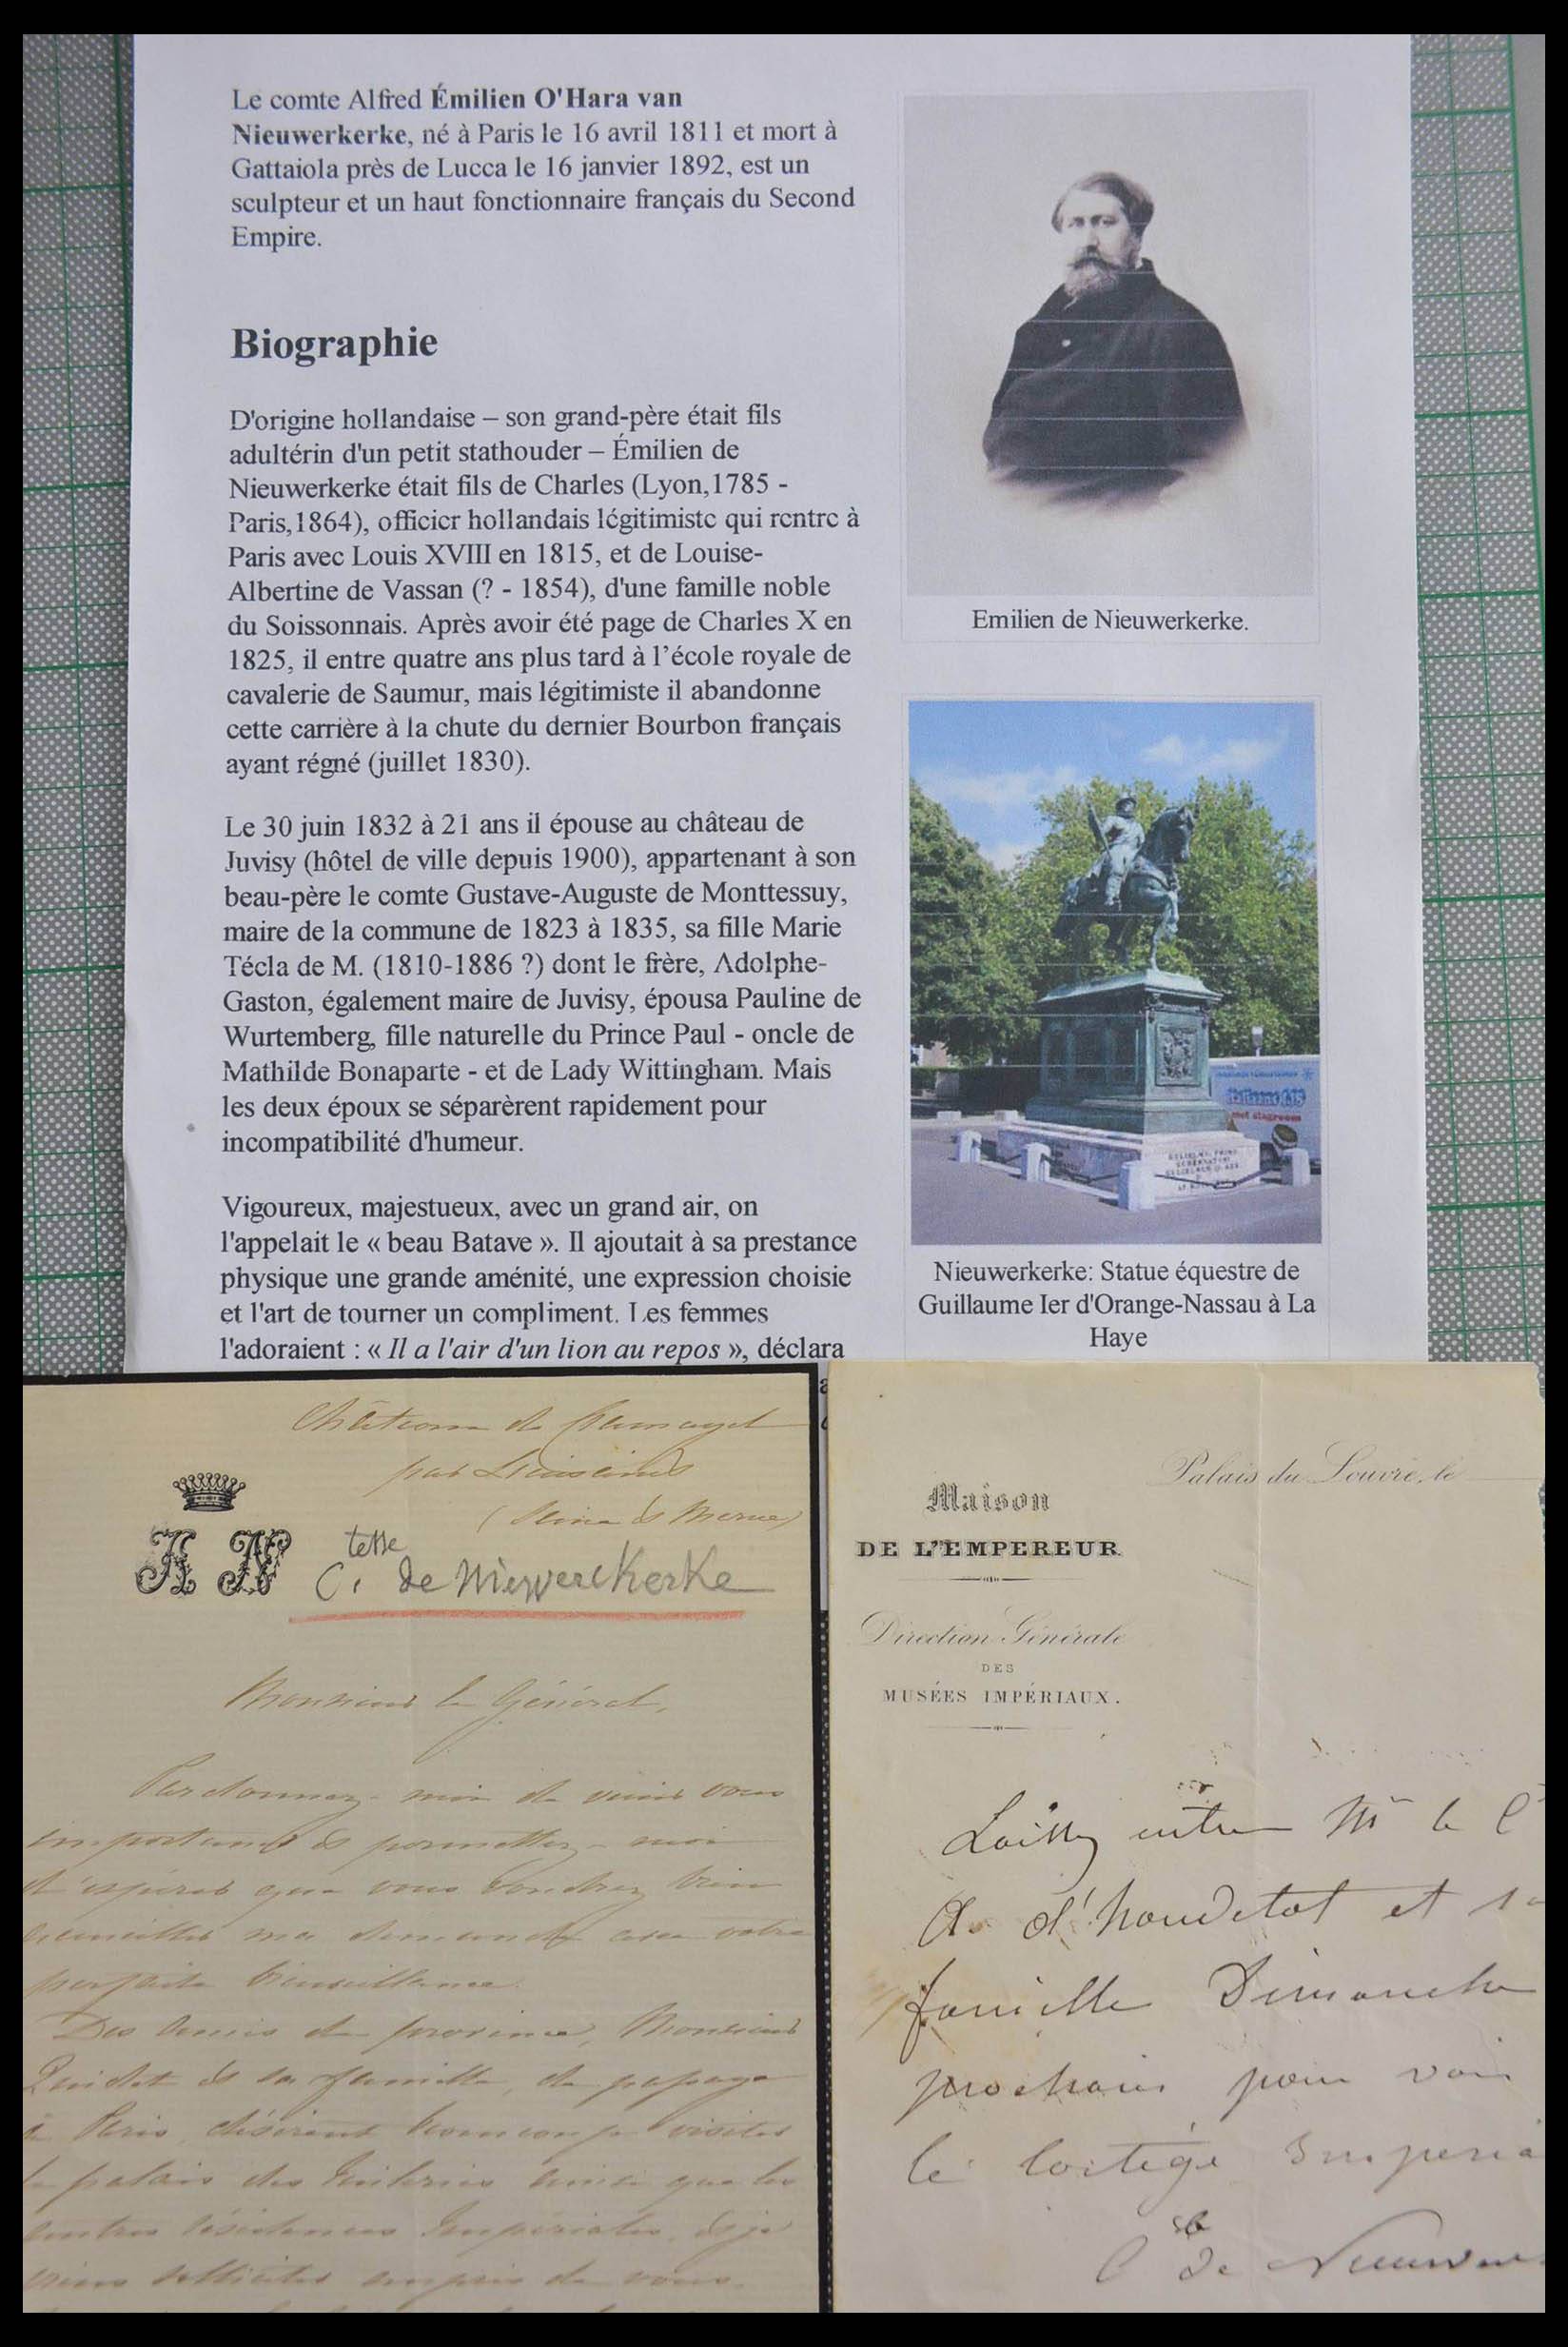 Le comte Alfred Émilien O'Hara van
Nieuwerkerke, né à Paris le 16 avril 1811 et mort à
Gattaiola près de Lucca le 16 janvier 1892, est un
sculpteur et un haut fonctionnaire français du Second
Empire.
Biographie
D'origine hollandaise – son grand-père était fils
adultérin d'un petit stathouder – Émilien de
Nieuwerkerke était fils de Charles (Lyon,1785 -
Paris,1864), officier hollandais légitimiste qui rentre à
Paris avec Louis XVIII en 1815, et de Louise-
Albertine de Vassan (? - 1854), d'une famille noble
du Soissonnais. Après avoir été page de Charles X en
1825, il entre quatre ans plus tard à l’école royale de
cavalerie de Saumur, mais légitimiste il abandonne
cette carrière à la chute du dernier Bourbon français
ayant régné (juillet 1830).
Le 30 juin 1832 à 21 ans il épouse au château de
Juvisy (hôtel de ville depuis 1900), appartenant à son
beau-père le comte Gustave-Auguste de Monttessuy,
maire de la commune de 1823 à 1835, sa fille Marie
Técla de M. (1810-1886 ?) dont le frère, Adolphe-
Gaston, également maire de Juvisy, épousa Pauline de
Wurtemberg, fille naturelle du Prince Paul - oncle de
Mathilde Bonaparte - et de Lady Wittingham. Mais
les deux époux se séparèrent rapidement pour
incompatibilité d'humeur.
Vigoureux, majestueux, avec un grand air, on
l'appelait le « beau Batave ». Il ajoutait à sa prestance
physique une grande aménité, une expression choisie
et l'art de tourner un compliment. Les femmes
l'adoraient : « Il a l'air d'un lion au repos », déclara
Emilien de Nieuwerkerke.
met slagroom
Nieuwerkerke: Statue équestre de
Guillaume Ier d'Orange-Nassau à La
Haye
Château de
par
(Seine et Marne)
N
Ctesse de Niewerckerke
Monsieur le Général,
Pardonnez-moi de venir vous
importuner et permettez-moi
d'espérer que vous voudrez bien
accueillir ma demande avec votre
parfaite bienveillance.
Des amis de province, Monsieur
et sa famille, de passage
à Paris, désirent beaucoup visiter
le palais des Tuileries ainsi que les
autres résidences Impériales, et je
viens solliciter auprès de vous
Palais du Louvre, le
Maison
DE L'EMPEREUR
Direction Générale
DES
MUSÉES IMPÉRIAUX.
Laissez entrer Mr le C
d'houdetot et sa
famille Dimanche
prochain pour voir
le Cortège Imperia
C de Nieuwer